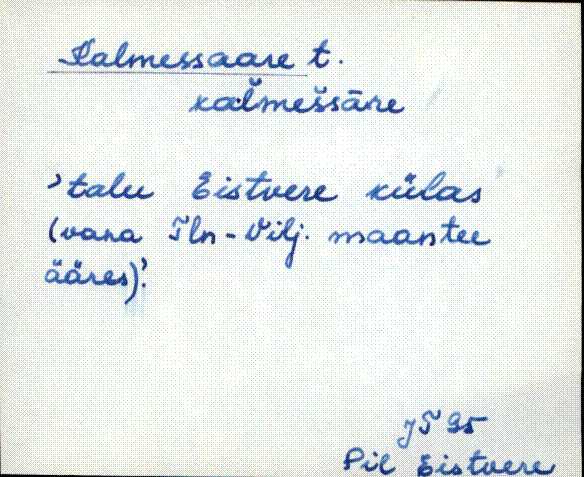 Kalmessaare t.
kal̆mes̆sāre
’talu Eistvere külas
(vana Tln-Vilj. maantee
ääres)’.
JT 95
Pil Eistvere